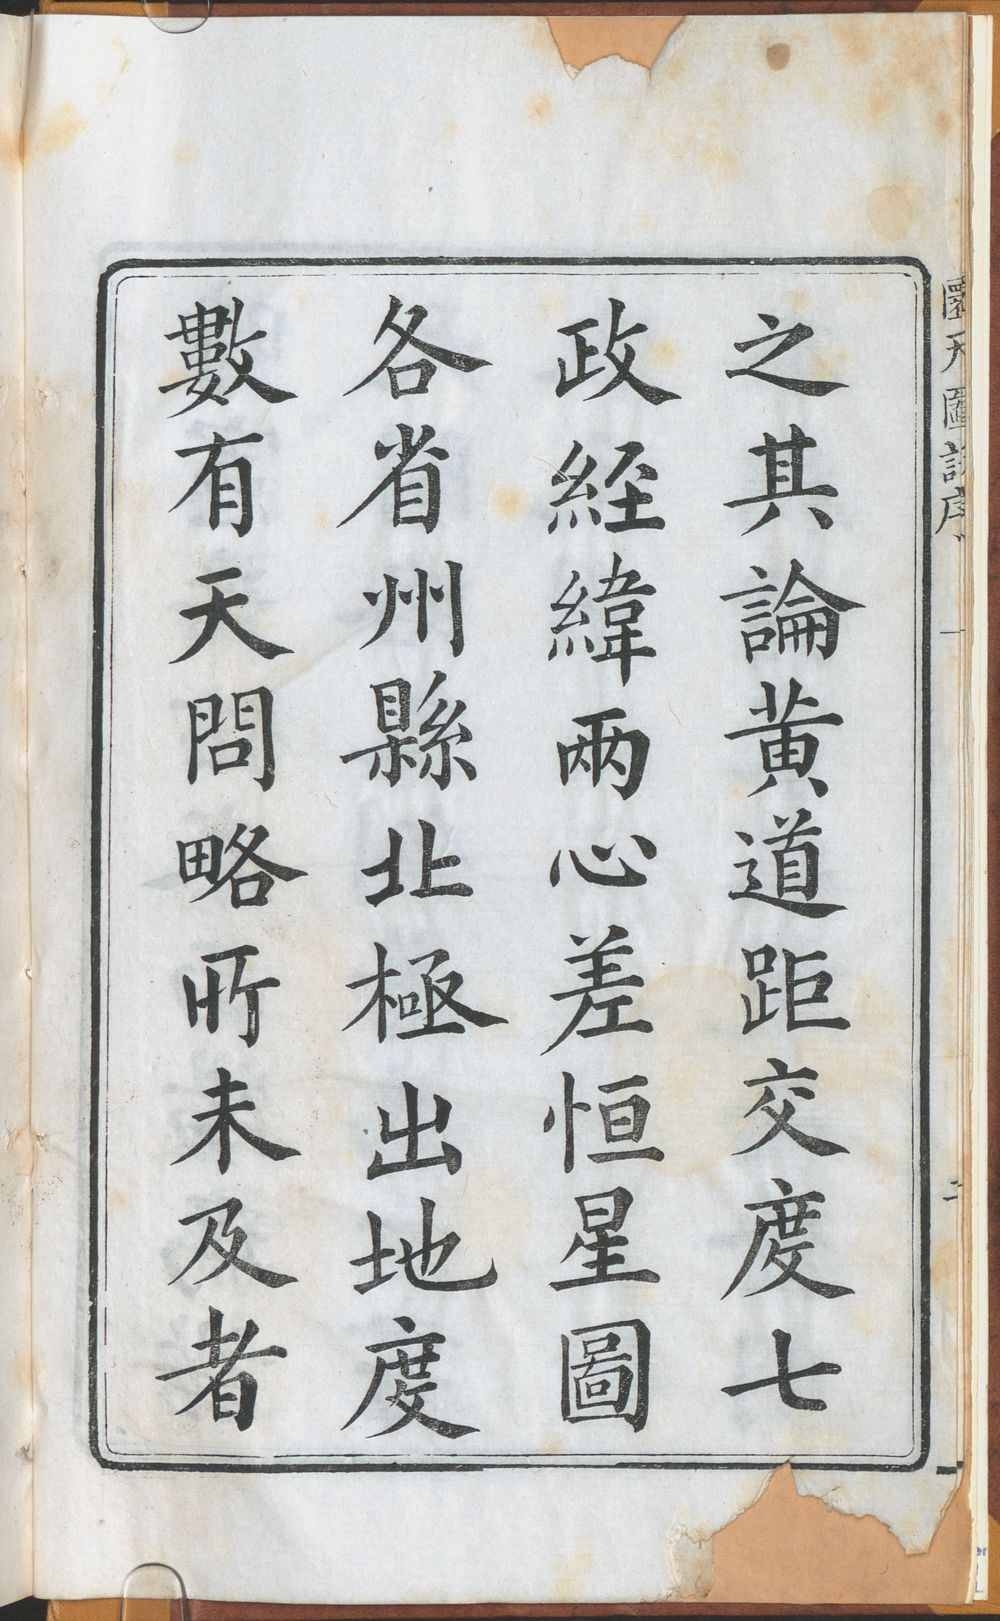 之其論黃道距交度七
政經緯兩心差恒星圖
各省州縣北極出地度
數有天問略所未及者
圜天圖說序
一
二